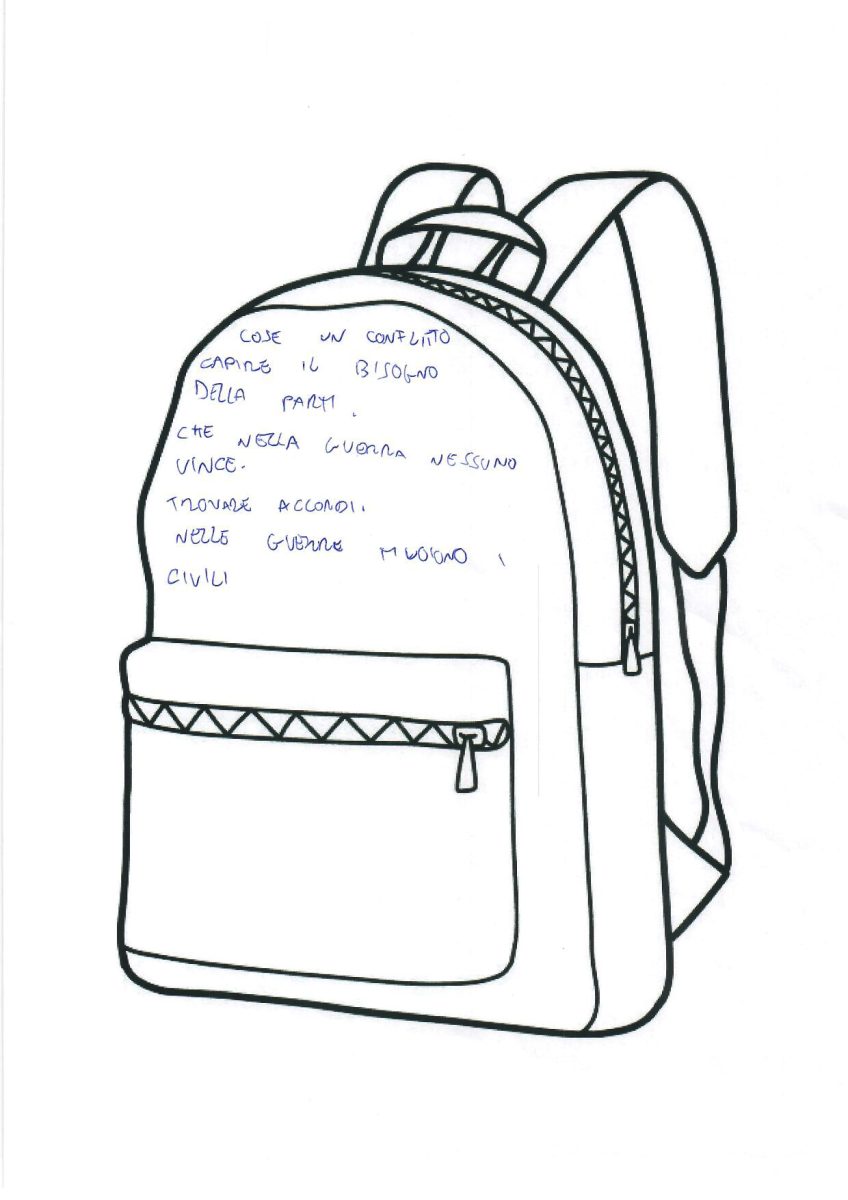 COSE UN CONFLITTO
CAPIRE IL BISOGNO
DELLA PARTI.
CHE NELLA GUERRA NESSUNO
VINCE.
TROVARE ACCORDI.
NELLE GUERRE MUOIONO I
CIVILI